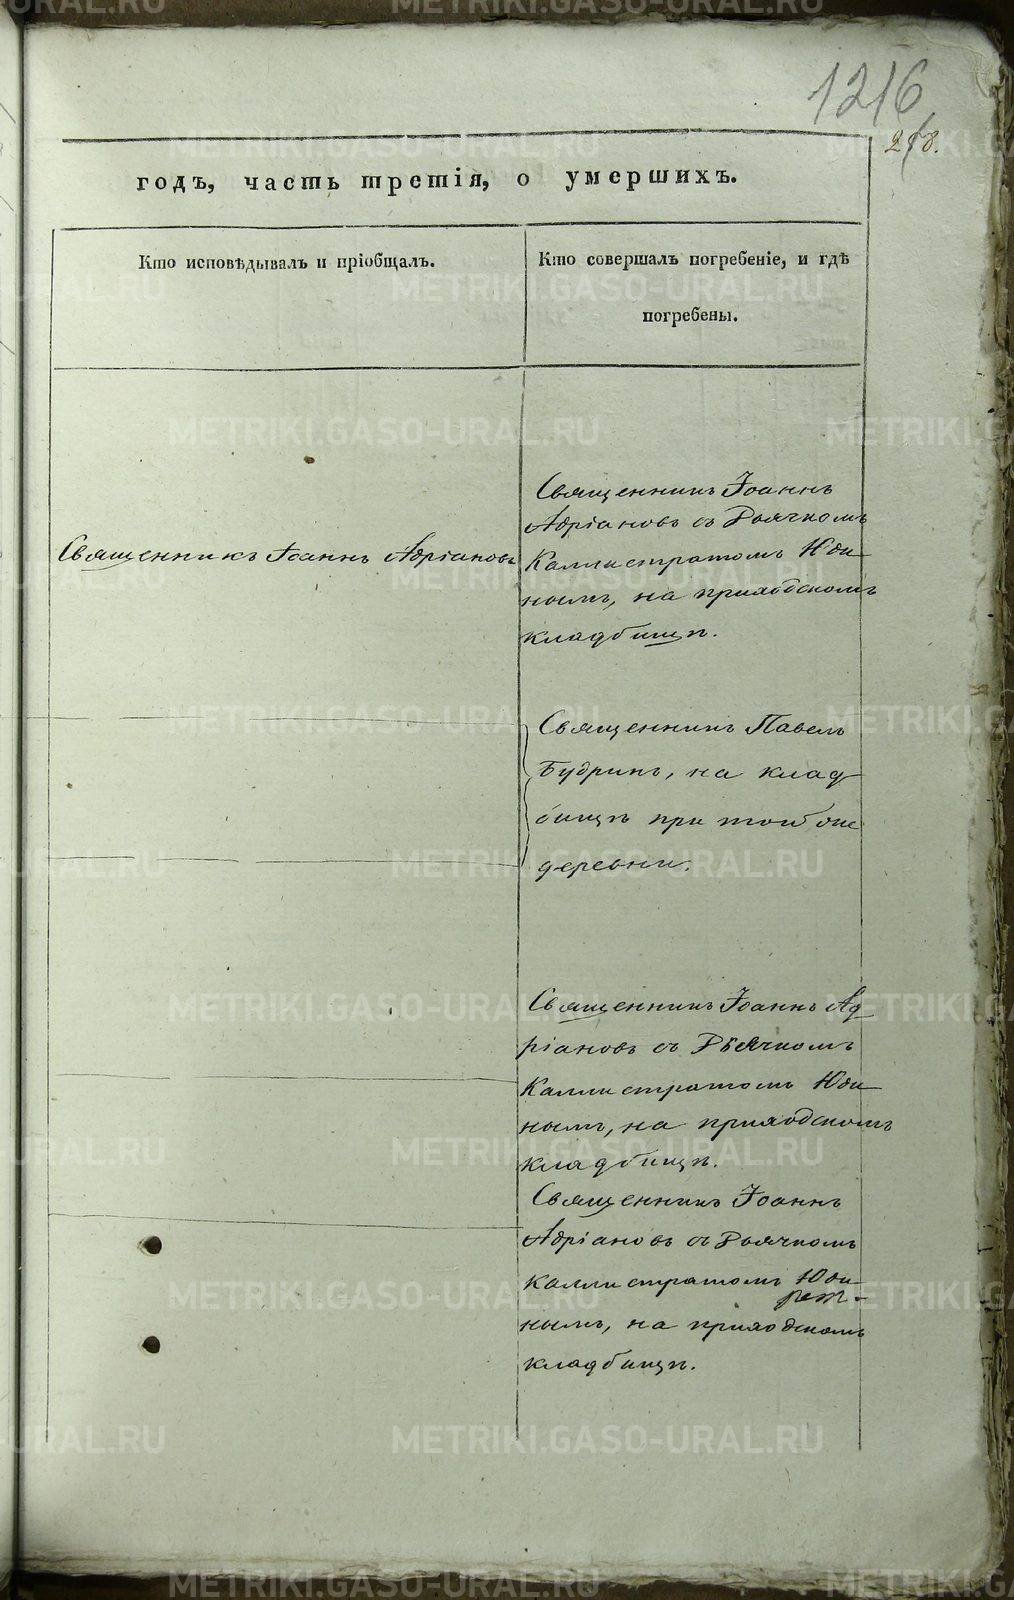 1216
218.
годъ, часть третія, о умершихъ.
Кто исповѣдывалъ и пріобщалъ.
Кто совершалъ погребеніе, и гдѣ
погребены.
Священникъ Іоаннъ Адріановъ
Священникъ Іоаннъ
Адріановъ съ Дьячкомъ
Каллистратомъ Юди
нымъ, на приходскомъ
кладбищѣ.
Священникъ Павелъ
Будринъ, на клад
бищѣ при той же
деревни.
Священникъ Іоаннъ Ад
ріановъ съ Дьячкомъ
Каллистратомъ Юди
нымъ, на приходскомъ
кладбищѣ.
Священникъ Іоаннъ
Адріановъ съ Дьячкомъ
Каллистратомъ Юди
нымъ, на приходскомъ
кладбищѣ.
METRIKI.GASO-URAL.RU